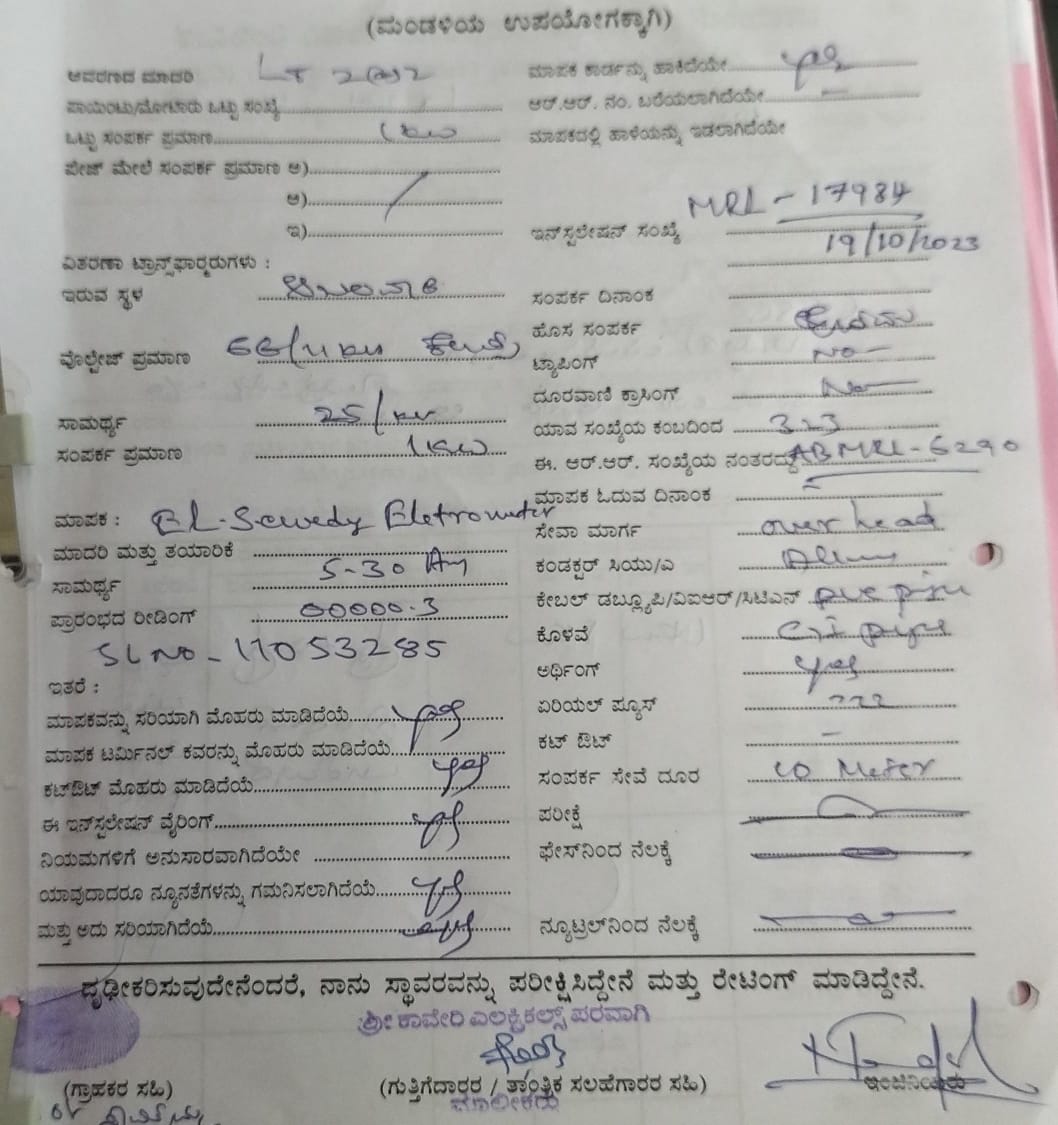 (ಮಂಡಳಿಯ ಉಪಯೋಗಕ್ಕಾಗಿ)
ಆವರಣದ ಮಾದರಿ
ಪಾಯಿಂಟು/ಮೋಟಾರು ಒಟ್ಟು ಸಂಖ್ಯೆ
ಒಟ್ಟು ಸಂಪರ್ಕ ಪ್ರಮಾಣ 1KW
ಪೇಜ್ ಮೇಲೆ ಸಂಪರ್ಕ ಪ್ರಮಾಣ ಅ)
ಆ)
ಇ)
ವಿತರಣಾ ಟ್ರಾನ್ಸ್‌ಫಾರ್ಮರುಗಳು :
ಇರುವ ಸ್ಥಳ
ವೊಲ್ಟೇಜ್ ಪ್ರಮಾಣ 66/11KV
ಸಾಮರ್ಥ್ಯ 25/
ಸಂಪರ್ಕ ಪ್ರಮಾಣ 1KW
ಮಾಪಕ : El-Sewedy Eletrometer
ಮಾದರಿ ಮತ್ತು ತಯಾರಿಕೆ
ಸಾಮರ್ಥ್ಯ 5-30 Am
ಪ್ರಾರಂಭದ ರೀಡಿಂಗ್ 00000.3
SL NO - 11053285
ಇತರೆ :
ಮಾಪಕವನ್ನು ಸರಿಯಾಗಿ ಮೊಹರು ಮಾಡಿದೆಯೆ yes
ಮಾಪಕ ಟರ್ಮಿನಲ್ ಕವರನ್ನು ಮೊಹರು ಮಾಡಿದೆಯೆ
ಕಟ್‌ಔಟ್ ಮೊಹರು ಮಾಡಿದೆಯೆ yes
ಈ ಇನ್‌ಸ್ಟಲೇಷನ್ ವೈರಿಂಗ್ yes
ನಿಯಮಗಳಿಗೆ ಅನುಸಾರವಾಗಿದೆಯೇ
ಯಾವುದಾದರೂ ನ್ಯೂನತೆಗಳನ್ನು ಗಮನಿಸಲಾಗಿದೆಯೆ yes
ಮತ್ತು ಅದು ಸರಿಯಾಗಿದೆಯೆ yes
ಮಾಪಕ ಕಾರ್ಡನ್ನು ಹಾಕಿದೆಯೇ yes
ಆರ್.ಆರ್. ನಂ. ಬರೆಯಲಾಗಿದೆಯೇ –
ಮಾಪಕದಲ್ಲಿ ಹಾಳೆಯನ್ನು ಇಡಲಾಗಿದೆಯೇ
ಇನ್‌ಸ್ಟಲೇಷನ್ ಸಂಖ್ಯೆ MRL - 17984
19/10/2023
ಸಂಪರ್ಕ ದಿನಾಂಕ
ಹೊಸ ಸಂಪರ್ಕ
ಟ್ಯಾಪಿಂಗ್ No
ದೂರವಾಣಿ ಕ್ರಾಸಿಂಗ್ No
ಯಾವ ಸಂಖ್ಯೆಯ ಕಂಬದಿಂದ 323
ಈ. ಆರ್.ಆರ್. ಸಂಖ್ಯೆಯ ನಂತರದ್ದು ABMRL-6290
ಮಾಪಕ ಓದುವ ದಿನಾಂಕ
ಸೇವಾ ಮಾರ್ಗ over head
ಕಂಡಕ್ಟರ್ ಸಿಯು/ಎ
ಕೇಬಲ್ ಡಬ್ಲ್ಯೂಪಿ/ವಿಐಆರ್/ಸಿಟಿಎನ್
ಕೊಳವೆ GI pipe
ಅರ್ಥಿಂಗ್ yes
ಏರಿಯಲ್ ಫ್ಯೂಸ್
ಕಟ್ ಔಟ್ –
ಸಂಪರ್ಕ ಸೇವೆ ದೂರ 10 Meter
ಪರೀಕ್ಷೆ
ಫೇಸ್‌ನಿಂದ ನೆಲಕ್ಕೆ
ನ್ಯೂಟ್ರಲ್‌ನಿಂದ ನೆಲಕ್ಕೆ
ದೃಢೀಕರಿಸುವುದೇನೆಂದರೆ, ನಾನು ಸ್ಥಾವರವನ್ನು ಪರೀಕ್ಷಿಸಿದ್ದೇನೆ ಮತ್ತು ರೇಟಿಂಗ್ ಮಾಡಿದ್ದೇನೆ.
ಶ್ರೀ ಕಾವೇರಿ ಎಲೆಕ್ಟ್ರಿಕಲ್ಸ್ ಪರವಾಗಿ
(ಗ್ರಾಹಕರ ಸಹಿ)
(ಗುತ್ತಿಗೆದಾರರ / ತಾಂತ್ರಿಕ ಸಲಹೆಗಾರರ ಸಹಿ)
ಇಂಜಿನಿಯರು
ಮಾಲೀಕರು